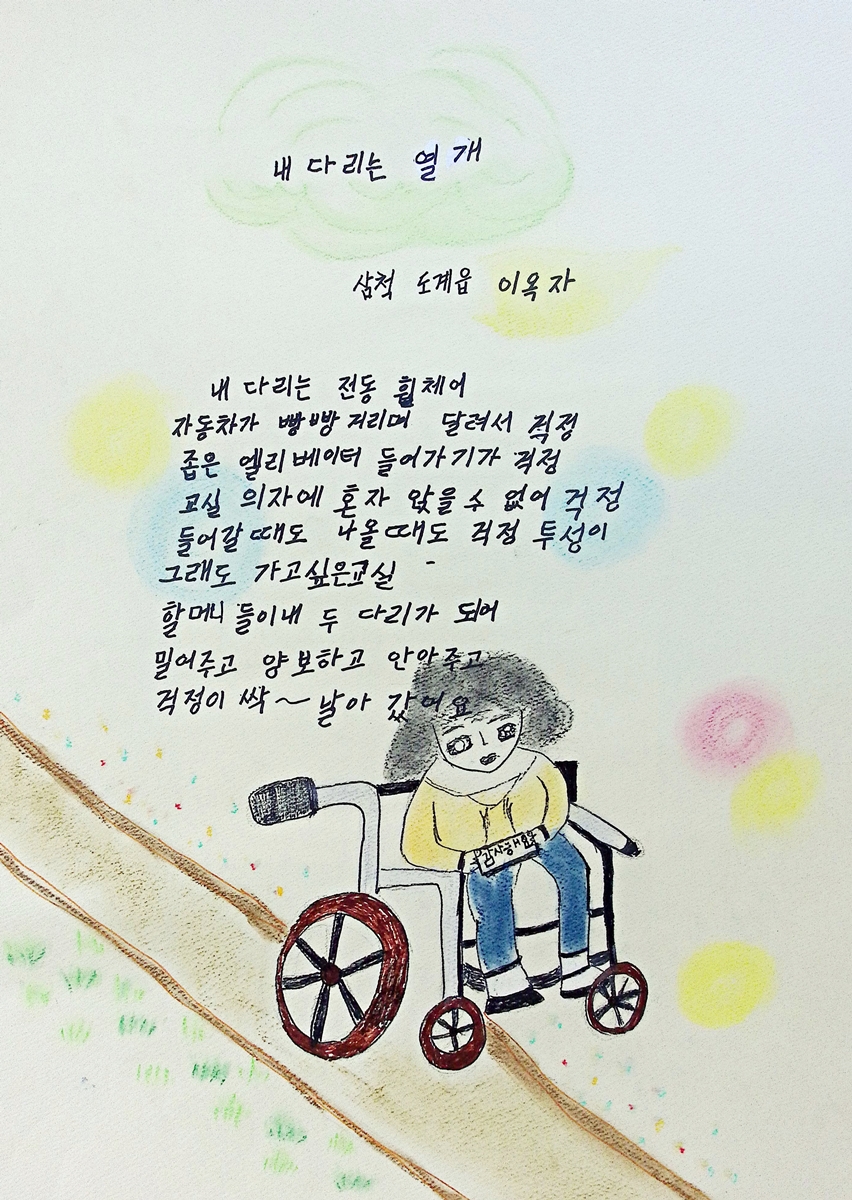 내 다리는 열 개
삼척 도계읍 이옥자
내 다리는 전동 휠체어
자동차가 빵빵 거리며 달려서 걱정
좁은 엘리베이터 들어가기가 걱정
교실 의자에 혼자 앉을 수 없어 걱정
들어갈 때도 나올 때도 걱정 투성이
그래도 가고싶은교실
할머니 들이내 두 다리가 되어
밀어주고 양보하고 안아주고
걱정이 싹~ 날아 갔어요
감사해요